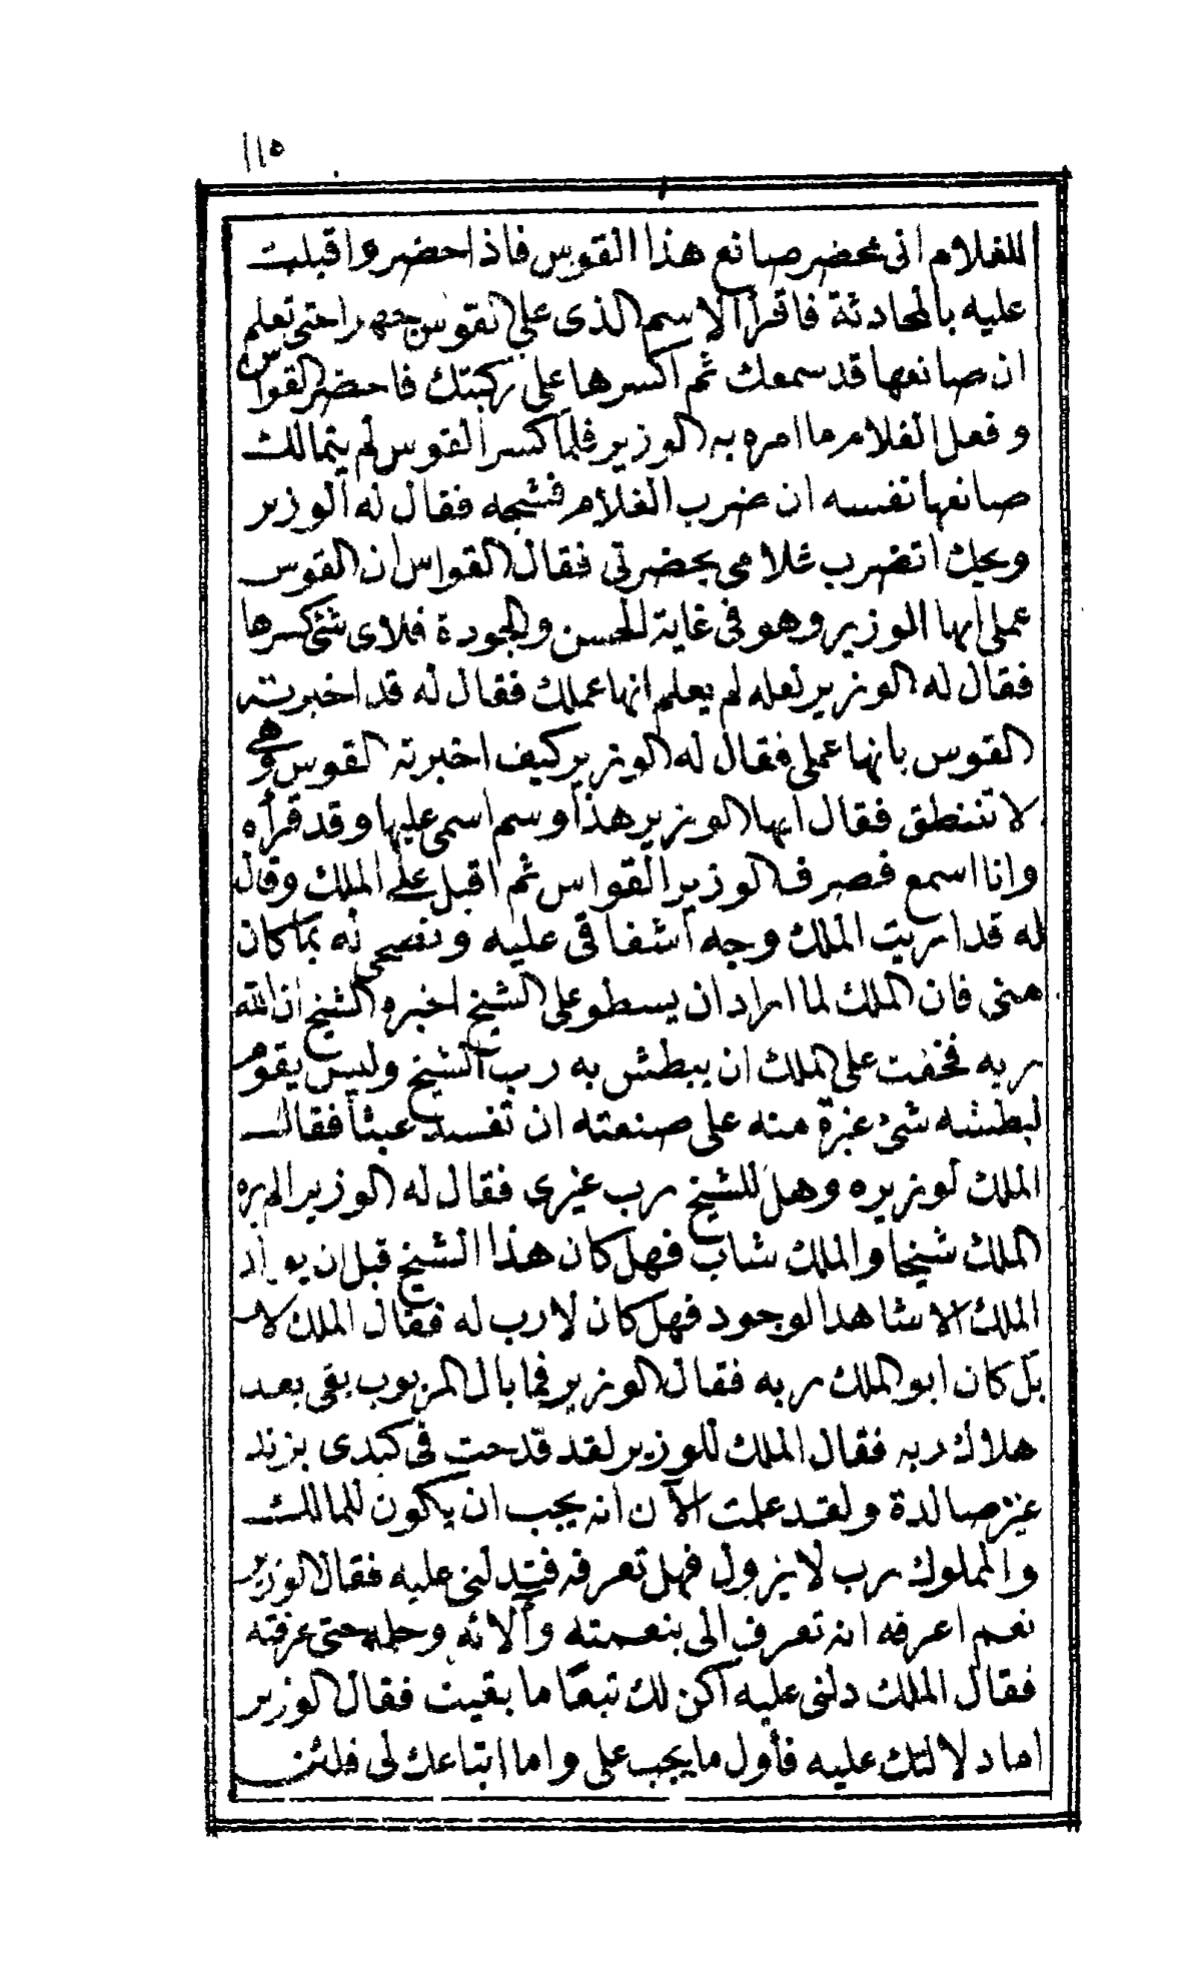 ١١٥
للغلام انى محضر صانع هذا القوس فاذا حضر واقبلت
عليه بالمحادثة فاقرأ الاسم الذى على القوس جهرا حتى تعلم
ان صانعها قد سمعك ثم اكسرها على ركبتك فاحضر القواس
وفعل الغلام ما امره به الوزير فلما كسر القوس لم يتمالك
صانعها نفسه ان ضرب الغلام فشجه فقال له الوزير
ويحك اتضرب غلامى بحضرتى فقال القواس ان القوس
عملى ايها الوزير وهو فى غاية الحسن والجودة فلاى شئ كسرها
فقال له الوزير لعله لم يعلم انها عملك فقال له قد اخبرته
القوس بانها عملى فقال له الوزير كيف اخبرته القوس وهى
لا تنطق فقال ايها الوزير هذا وسم اسمى عليها وقد قرأه
وانا اسمع فصرف الوزير القواس ثم اقبل على الملك وقال
له قد اريت الملك وجه اشفاقى عليه ونصحى له بما كان
منى فان الملك لما اراد ان يسطو على الشيخ اخبره الشيخ ان الله
ربه فخفت على الملك ان يبطش به رب الشيخ وليس يقوم
لبطشه شئ غيرة منه على صنعته ان تفسد عبثا فقال
الملك لوزيره وهل للشيخ رب غيرى فقال له الوزير الم يره
الملك شيخا والملك شاب فهل كان هذا الشيخ قبل ان يولد
الملك الا شاهد الوجود فهل كان لا رب له فقال الملك لا
بل كان ابو الملك ربه فقال الوزير فما بال المربوب بقى بعد
هلاك ربه فقال الملك للوزير لقد قدحت فى كبدى بزند
غير صالدة ولقد علمت الآن انه يجب ان يكون للمالك
والمملوك رب لا يزول فهل تعرفه فتدلنى عليه فقال الوزير
نعم اعرفه انه تعرف الى بنعمته وآلائه وحلمه حتى عرفته
فقال الملك دلنى عليه اكن لك تبعًا ما بقيت فقال الوزير
اما دلالتك عليه فأول ما يجب على واما اتباعك لى فلئن